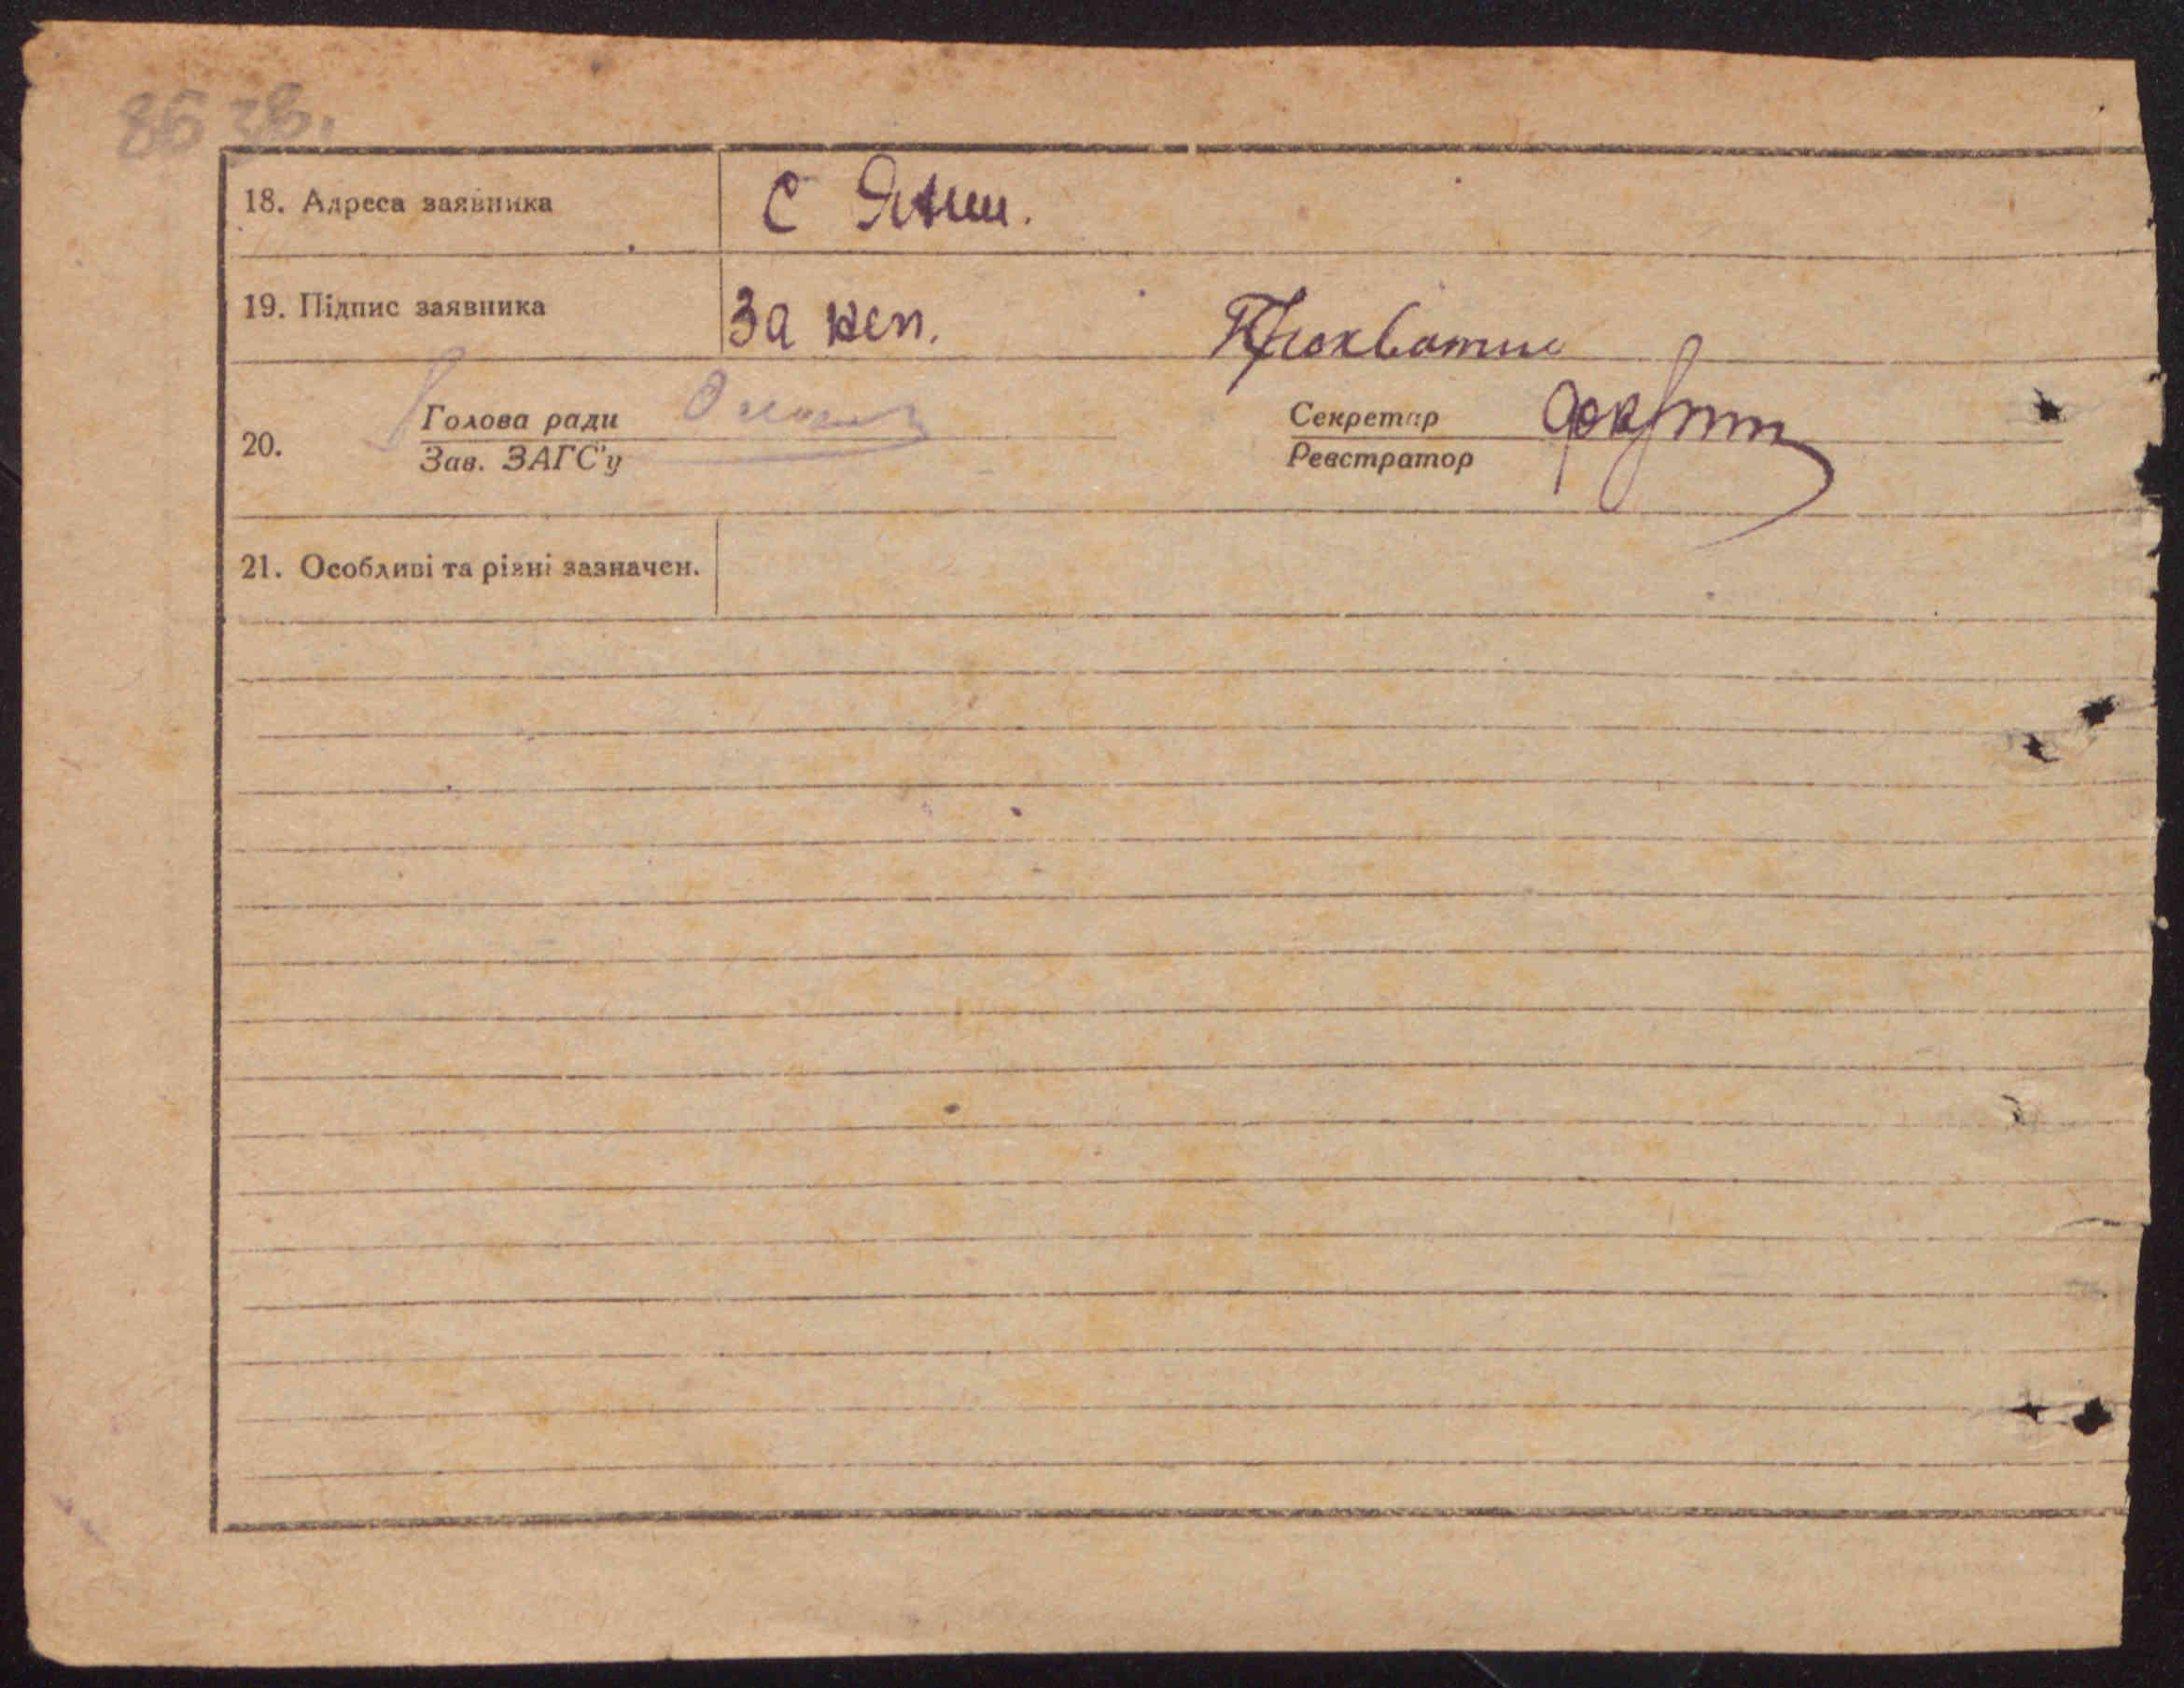 86 зв.
18. Адреса заявника С
19. Підпис заявника За неп.
20. Голова ради Секретар
Зав. ЗАГС'у Реєстратор
21. Особливі та різні зазначен.